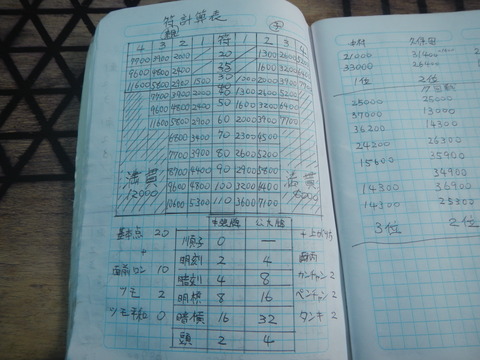 符計算表
親 子
4 3 2 1 符 1 2 3 4
7700 3900 2000 20 1300 2600 5200
9600 4800 2400 25 1600 3200 6400
11600 5800 2900 1500 30 1000 2000 3900 7700
7700 3900 2000 40 1300 2600 5200
9600 4800 2400 50 1600 3200 6400
11600 5800 2900 60 2000 3900 7700
6800 3400 70 2300 4500
7700 3900 80 2600 5200
満貫 8700 4400 90 2900 5800 満貫
12000 9600 4800 100 3200 6400 8000
10600 5300 110 3600 7100
公九牌
基本点 20 順子 0 — +上がり方
+ 明刻 2 4 両面
面前ロン 10 暗刻 4 8 カンチャン 2
ツモ 2 明槓 8 16 ペンチャン 2
ツモ平和 0 暗槓 16 32 タンキ 2
頭 2 4
久保田
21000 31400
33000 26400
1位 2位
25000 25000
37000 13000
36200 14300
24200 26300
15600 35900
34900
14300 36900
14300 25300
3位 2位